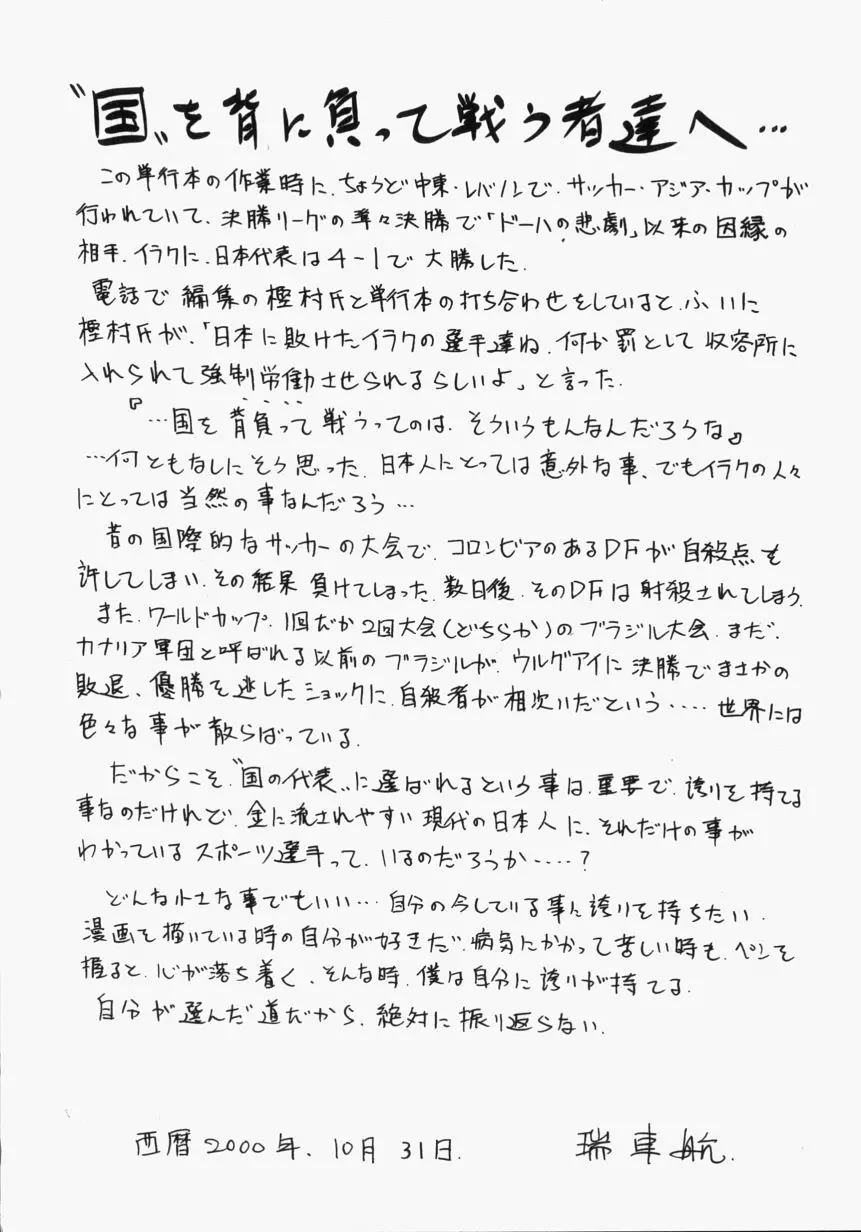 〝国〟を背に負って戦う者達へ…
この単行本の作業時に、ちょうど中東・レバノンで、サッカー・アジア・カップが
行われていて、決勝リーグの準々決勝で「ドーハの悲劇」以来の因縁の
相手、イラクに、日本代表は4-1で大勝した。
電話で編集の樫村氏と単行本の打ち合わせをしていると、ふいに
樫村氏が、「日本に敗けたイラクの選手達ね、何か罰として収容所に
入れられて強制労働させられるらしいよ」と言った。
『…国を背負って戦うってのは、そういうもんなんだろうな』
…何ともなしにそう思った。日本人にとっては意外な事、でもイラクの人々
にとっては当然の事なんだろう…
昔の国際的なサッカーの大会で、コロンビアのあるDFが自殺点を
許してしまい、その結果負けてしまった。数日後、そのDFは射殺されてしまう。
また、ワールドカップ、1回だか2回大会(どちらか)のブラジル大会、まだ、
カナリア軍団と呼ばれる以前のブラジルが、ウルグアイに決勝でまさかの
敗退、優勝を逃したショックに、自殺者が相次いだという……世界には
色々な事が散らばっている。
だからこそ、〝国の代表〟に選ばれるという事は、重要で、誇りを持てる
事なのだけれど、金に流されやすい現代の日本人に、それだけの事が
わかっているスポーツ選手って、いるのだろうか……?
どんな小さな事でもいい…自分の今している事に誇りを持ちたい。
漫画を描いている時の自分が好きだ。病気にかかって苦しい時も、ペンを
握ると、心が落ち着く、そんな時、僕は自分に誇りが持てる。
自分が選んだ道だから、絶対に振り返らない。
西暦2000年、10月31日.
瑞車航.